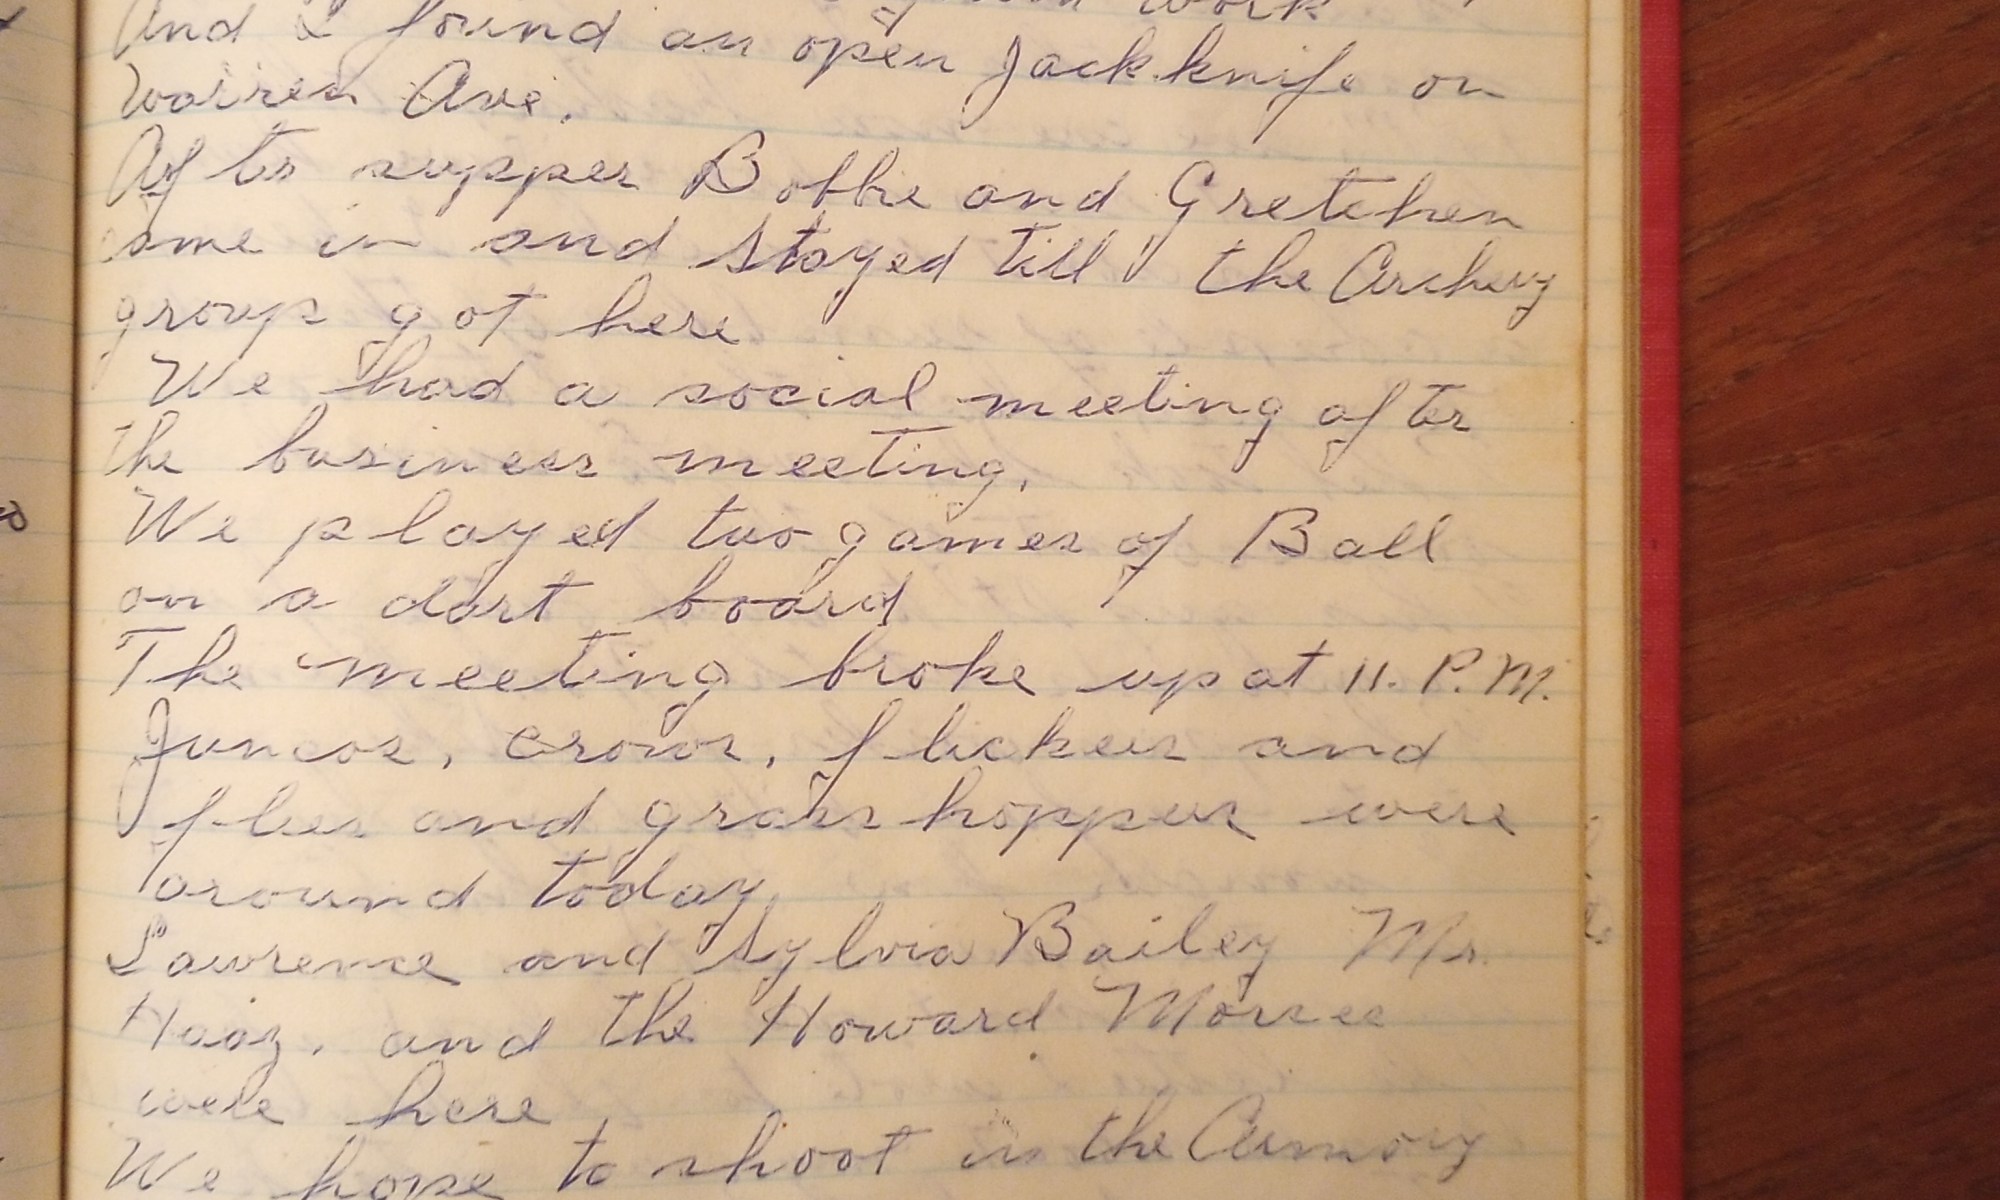 work
And I found an open Jackknife on
Warren Ave.
After supper Bobbie and Gretchen
came in and stayed till the Archery
group got here
We had a social meeting after
the business meeting.
We played two games of Ball
on a dart board
The meeting broke up at 11. P.M.
Juncos, crows, flickers and
flies and grasshoppers were
around today
Lawrence and Sylvia Bailey Mr.
and the Howard Morses
were here
We hope to shoot in the Armory